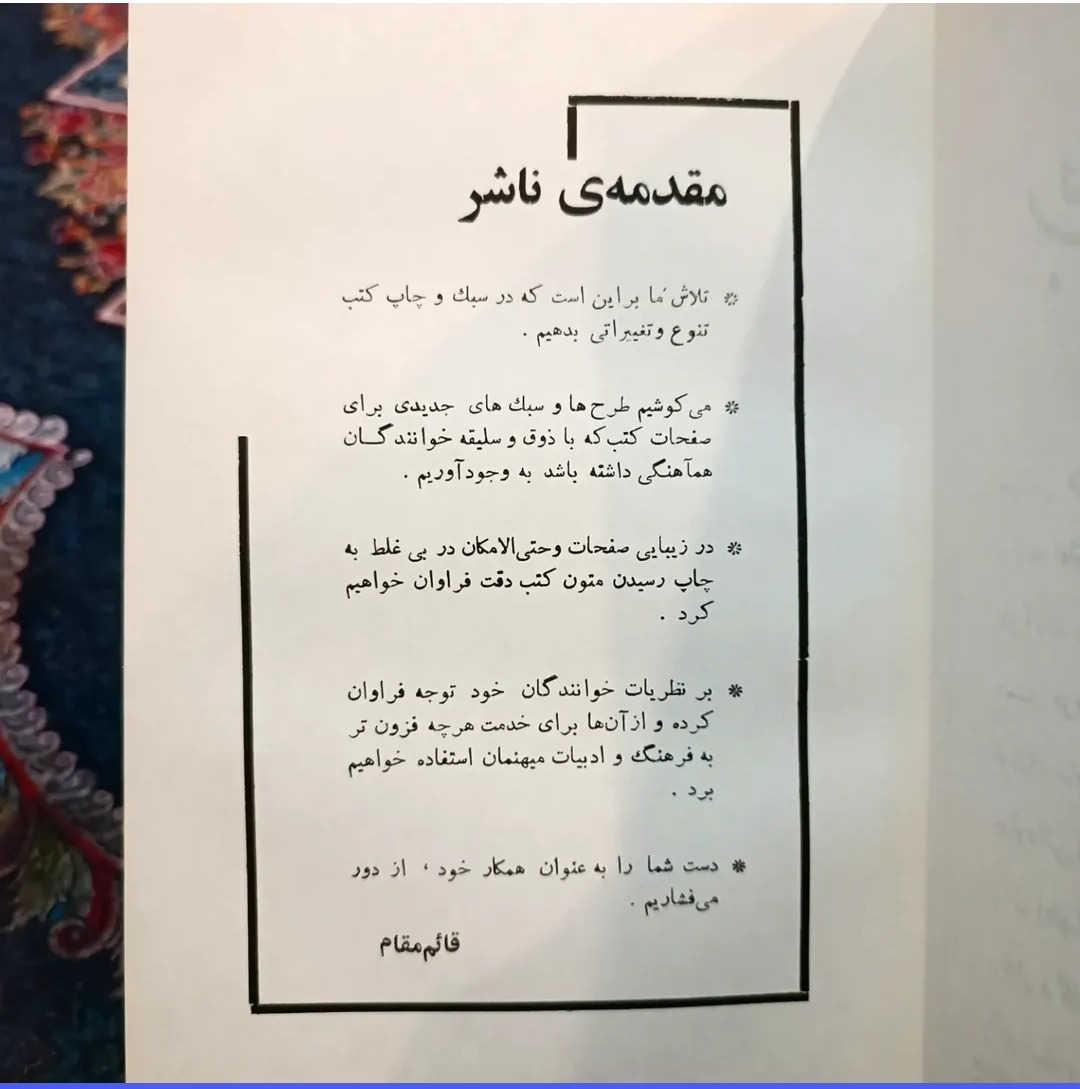 مقدمه‌ی ناشر
* تلاش ما براین است که در سبك و چاپ کتب
تنوع وتغییراتی بدهیم .
* می‌کوشیم طرح‌ها و سبك های جدیدی برای
صفحات کتب‌که با ذوق و سلیقه خوانندگـان
همآهنگی داشته باشد به وجودآوریم .
* در زیبایی صفحات وحتی‌الامکان در بی غلط به
چاپ رسیدن متون کتب دقت فراوان خواهیم
کرد .
* بر نظریات خوانندگان خود توجه فراوان
کرده و ازآن‌ها برای خدمت هرچه فزون تر
به فرهنگ و ادبیات میهنمان استفاده خواهیم
برد .
* دست شما را به عنوان همکار خود ، از دور
می‌فشاریم .
قائم‌مقام